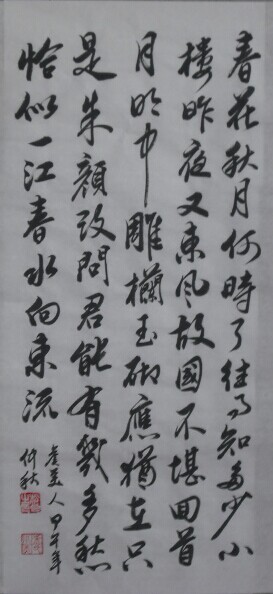 春花秋月何時了往事知多少小
樓昨夜又東風故國不堪回首
月明中雕欄玉砌應猶在只
是朱顏改問君能有幾多愁
恰似一江春水向東流
虞美人甲午年
仲秋